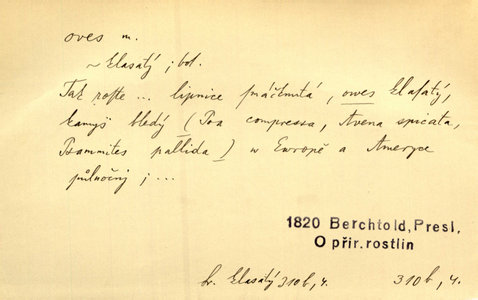 oves m.
~ klasatý ; bot.
Tak roste ... lipnice smáčknutá, owes klasatý,
kamyš bledý (Poa compressa, Avena spicata,
Psammites pallida) w Europě a Ameryce
půlnočnj ; ...
1820 Berchtold, Presl,
O přir. rostlin
hr. klasatý 310b, 4. 310b, 4.